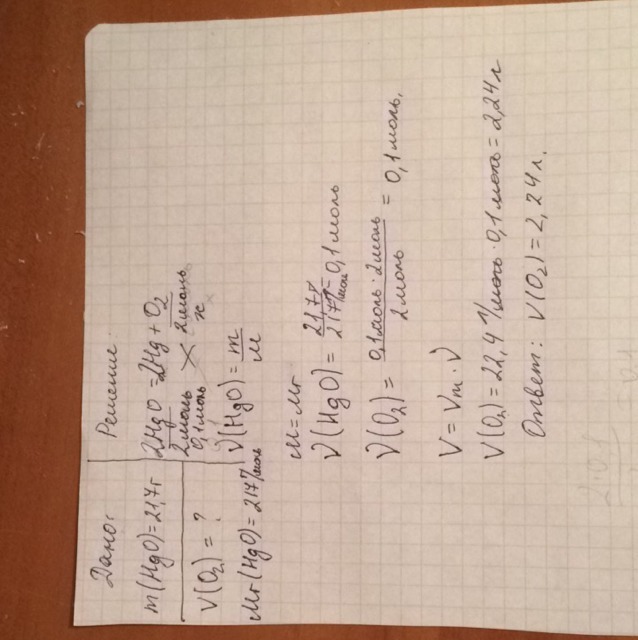 Дано:
m(HgO)=21,7г
V(O₂)=?
Mr(HgO)=217г/моль
Решение.
2HgO=2Hg+O₂
2моль 2моль
0,1моль x
ν(HgO)=m/M
M=Mr
ν(HgO)=21,7г/217г/моль=0,1моль
ν(O₂)=0,1моль·2моль/2моль=0,1моль.
V=Vm·ν
V(O₂)=22,4л/моль·0,1моль=2,24л
Ответ: V(O₂)=2,24л.